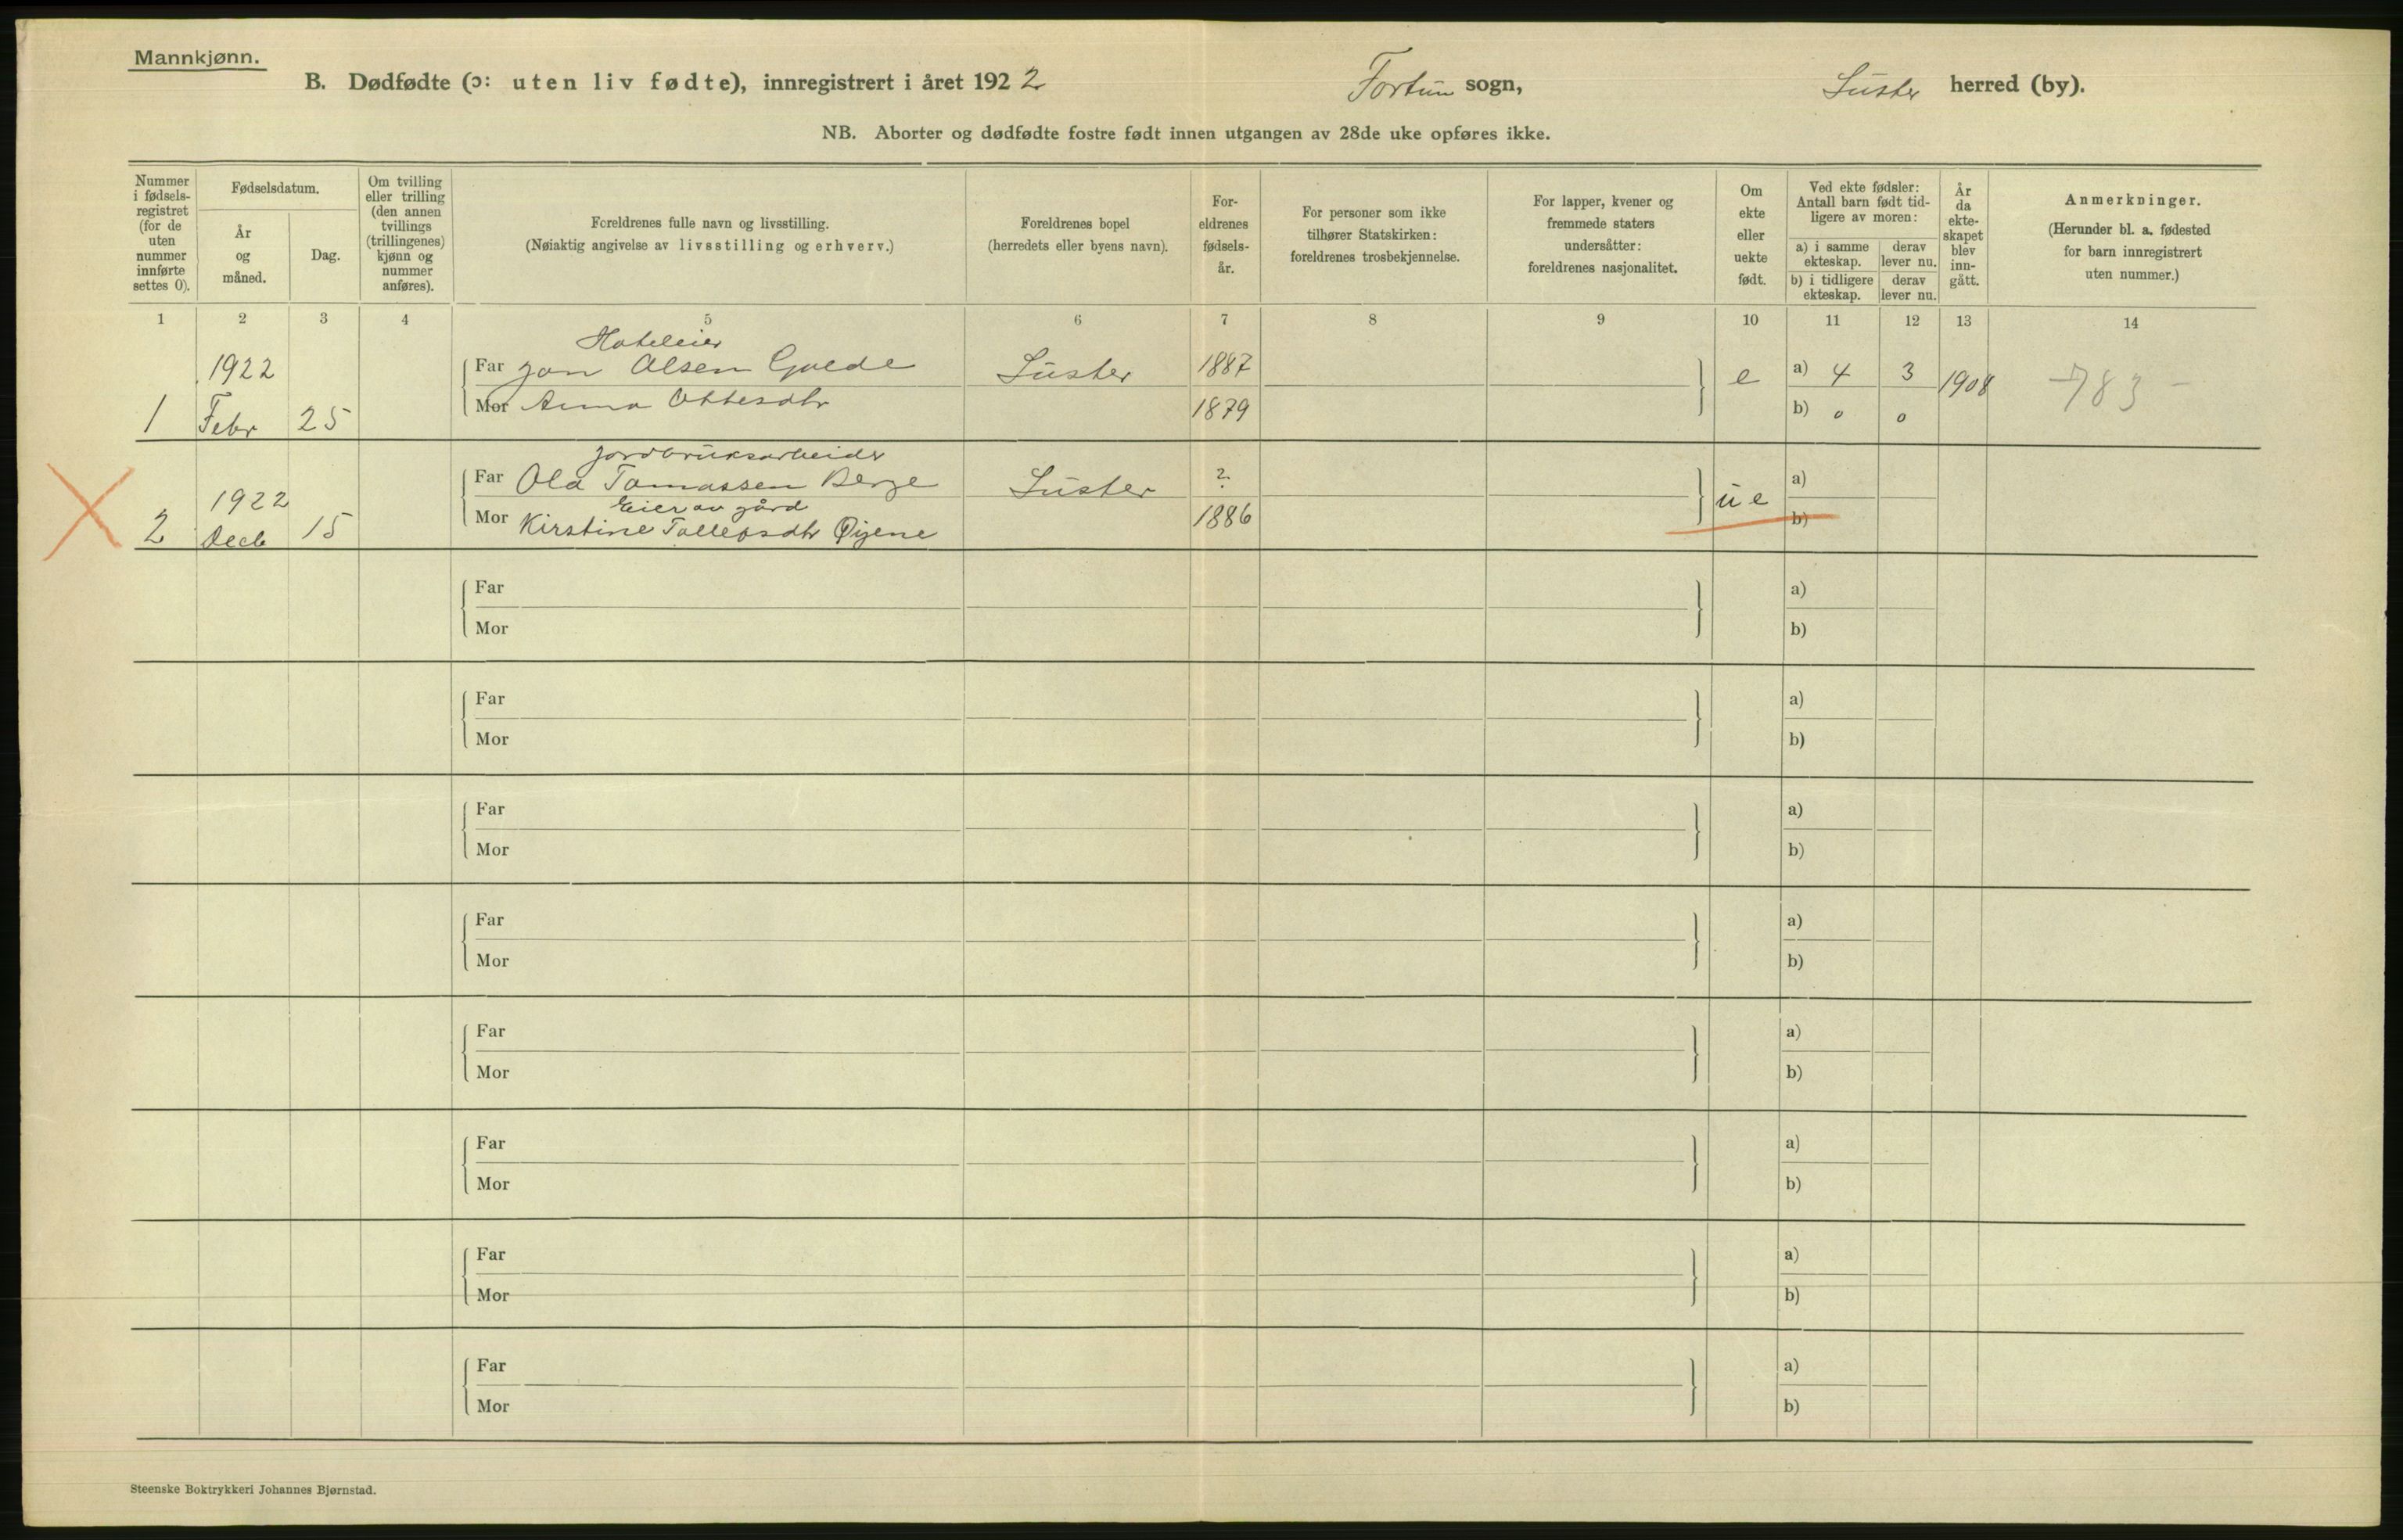 Mannkjønn.
B. Dødfødte (ɔ: uten liv fødte), innregistrert i året 1922 Fortun sogn, Luster herred (by).
NB. Aborter og dødfødte fostre født innen utgangen av 28de uke opføres ikke.
Nummer i fødsels-registret (for de uten nummer innførte settes 0).
Fødselsdatum.
År og måned.
Dag.
Om tvilling eller trilling (den annen tvillings (trillingenes) kjønn og nummer anføres).
Foreldrenes fulle navn og livsstilling.
(Nøiaktig angivelse av livsstilling og erhverv.)
Foreldrenes bopel
(herredets eller byens navn).
For-eldrenes fødsels-år.
For personer som ikke tilhører Statskirken: foreldrenes trosbekjennelse.
For lapper, kvener og fremmede staters undersåtter: foreldrenes nasjonalitet.
Om ekte eller uekte født.
Ved ekte fødsler: Antall barn født tid-ligere av moren:
a) i samme ekteskap. derav lever nu.
b) i tidligere ekteskap. derav lever nu.
År da ekte-skapet blev inn-gått.
Anmerkninger.
(Herunder bl. a. fødested for barn innregistrert uten nummer.)
1 2 3 4 5 6 7 8 9 10 11 12 13 14
Hoteleier
1922 Far Jon Olsen Luster 1887 e a) 4 3 1908 783
1 Febr 25 Mor Anna Ottesdtr 1879 b) 0 0
Jordbruksarbeider
1922 Far Ola Tomassen Berge Luster ? ue a)
Eier av gård
2 Decb 15 Mor Kirstine Tollefsdtr Øyene 1886 b)
Far a)
Mor b)
Far a)
Mor b)
Far a)
Mor b)
Far a)
Mor b)
Far a)
Mor b)
Far a)
Mor b)
Far a)
Mor b)
Far a)
Mor b)
Steenske Boktrykkeri Johannes Bjørnstad.